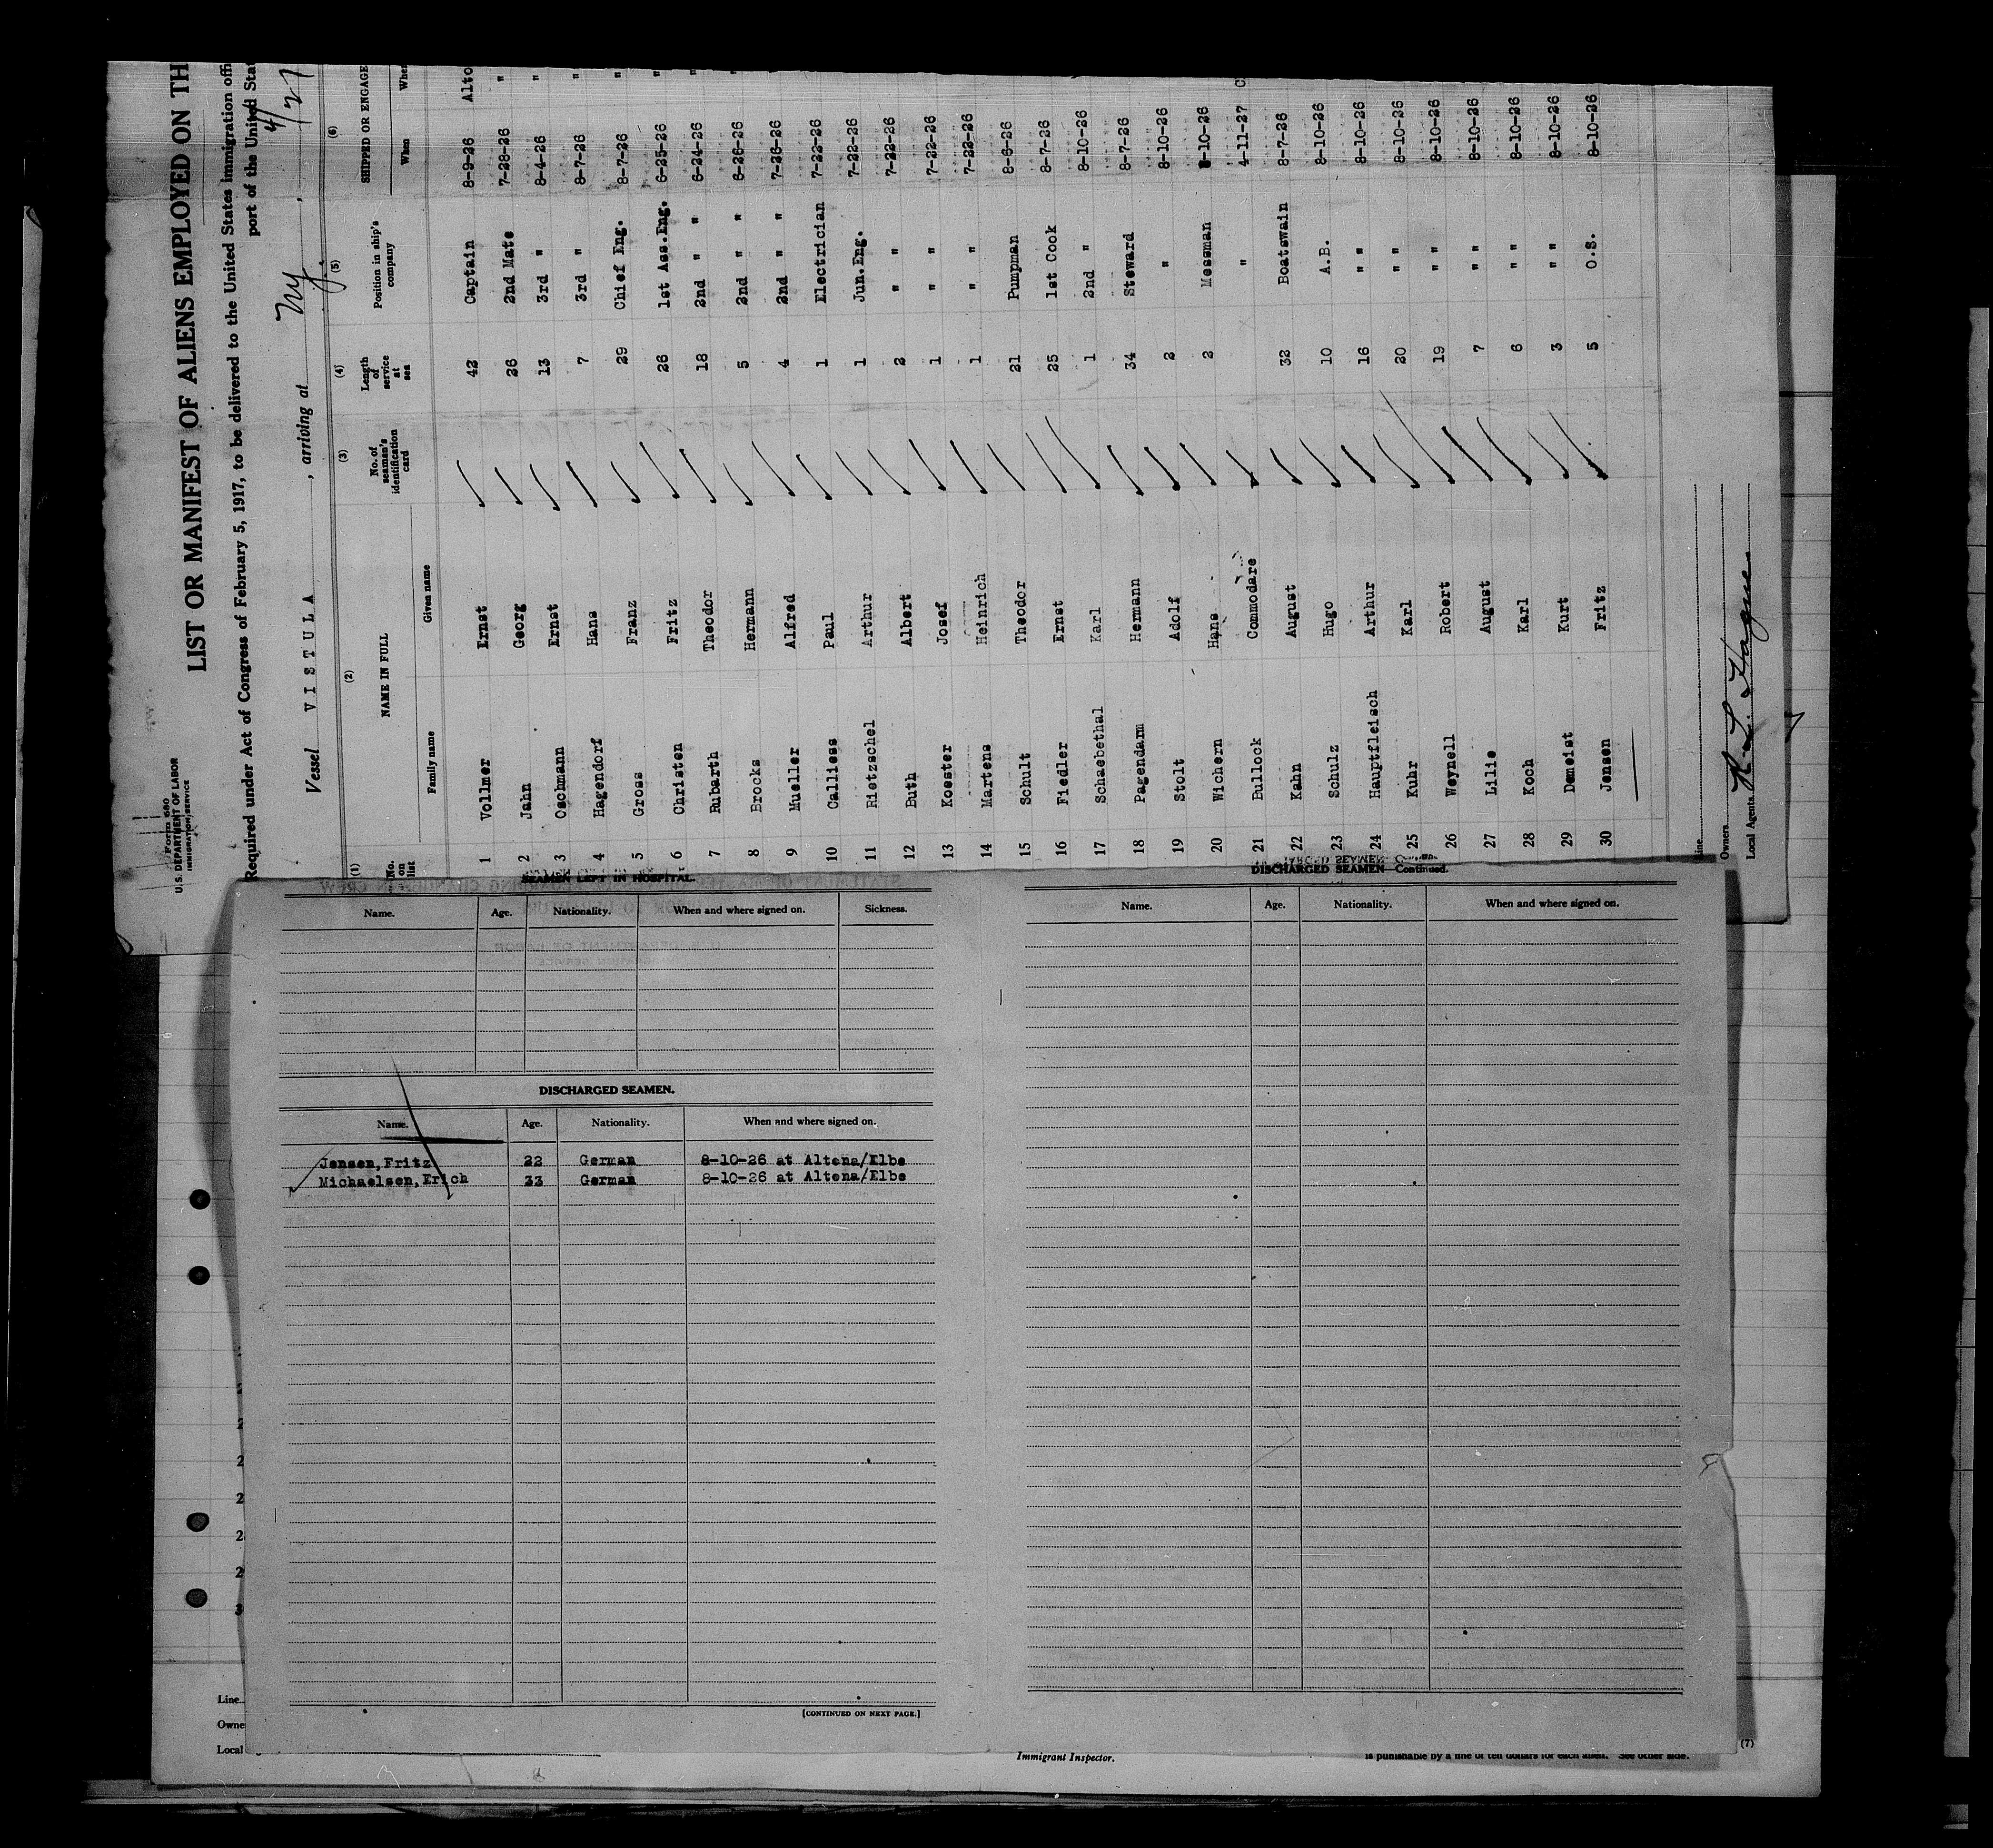 Form 680
U.S. DEPARTMENT OF LABOR
IMMIGRATION SERVICE
LIST OR MANIFEST OF ALIENS EMPLOYED ON TH
Required under Act of Congress of February 5, 1917, to be delivered to the United States immigration offi
port of the United Stat
Vessel VISTULA, arriving at NY, 4/27
(1) (2) (3) (4) (5) (6)
No. on list NAME IN FULL No. of seaman's identification card Length of service at sea Position in ship's company SHIPPED OR ENGAGE
Family name Given name When Wher
1 Vollmer Ernst 42 Captain 8-9-26 Alto
2 Jahn Georg 26 2nd Mate 7-28-26 "
3 Oschmann Ernst 13 3rd " 8-4-26 "
4 Hagendorf Hans 7 3rd " 8-7-26 "
5 Gross Franz 29 Chief Eng. 8-7-26 "
6 Christen Fritz 26 1st Ass.Eng. 6-25-26 "
7 Rubarth Theodor 18 2nd " " 6-24-26 "
8 Brocks Hermann 5 2nd " " 6-26-26 "
9 Mueller Alfred 4 2nd " " 7-26-26
10 Calliess Paul 1 Electrician 7-22-26
11 Rietzschel Arthur 1 Jun.Eng. 7-22-26
12 Buth Albert 2 " " 7-22-26
13 Koester Josef 1 " " 7-22-26
14 Martens Heinrich 1 " " 7-22-26
15 Schult Theodor 21 Pumpman 8-6-26
16 Fiedler Ernst 25 1st Cook 8-7-26
17 Schaebethal Karl 1 2nd " 8-10-26
18 Pagendarm Hermann 34 Steward 8-7-26
19 Stolt Adolf 2 " 8-10-26
20 Wichern Hans 2 Messman 8-10-26
21 Bullock Commodare " 4-11-27 C
22 Kahn August 32 Boatswain 8-7-26
23 Schulz Hugo 10 A.B. 8-10-26
24 Hauptfleisch Arthur 16 " " 8-10-26
25 Kuhr Karl 20 " " 8-10-26
26 Weynell Robert 19 " " 8-10-26
27 Lilie August 7 " " 8-10-26
28 Koch Karl 6 " " 8-10-26
29 Demeist Kurt 3 " " 8-10-26
30 Jensen Fritz 5 O.S. 8-10-26
Line
Owners
Local Agents R. L. Hague
SEAMEN LEFT IN HOSPITAL.
Name. Age. Nationality. When and where signed on. Sickness.
DISCHARGED SEAMEN.
Name. Age. Nationality. When and where signed on.
Jensen, Fritz 22 German 8-10-26 at Altena/Elbe
Michaelsen, Erich 33 German 8-10-26 at Altena/Elbe
[CONTINUED ON NEXT PAGE.]
DISCHARGED SEAMEN—Continued.
Name. Age. Nationality. When and where signed on.
2
2
2
2
Line
Owne
Local
Immigrant Inspector.
is punishable by a fine of ten dollars for each alien. See other side.
(7)